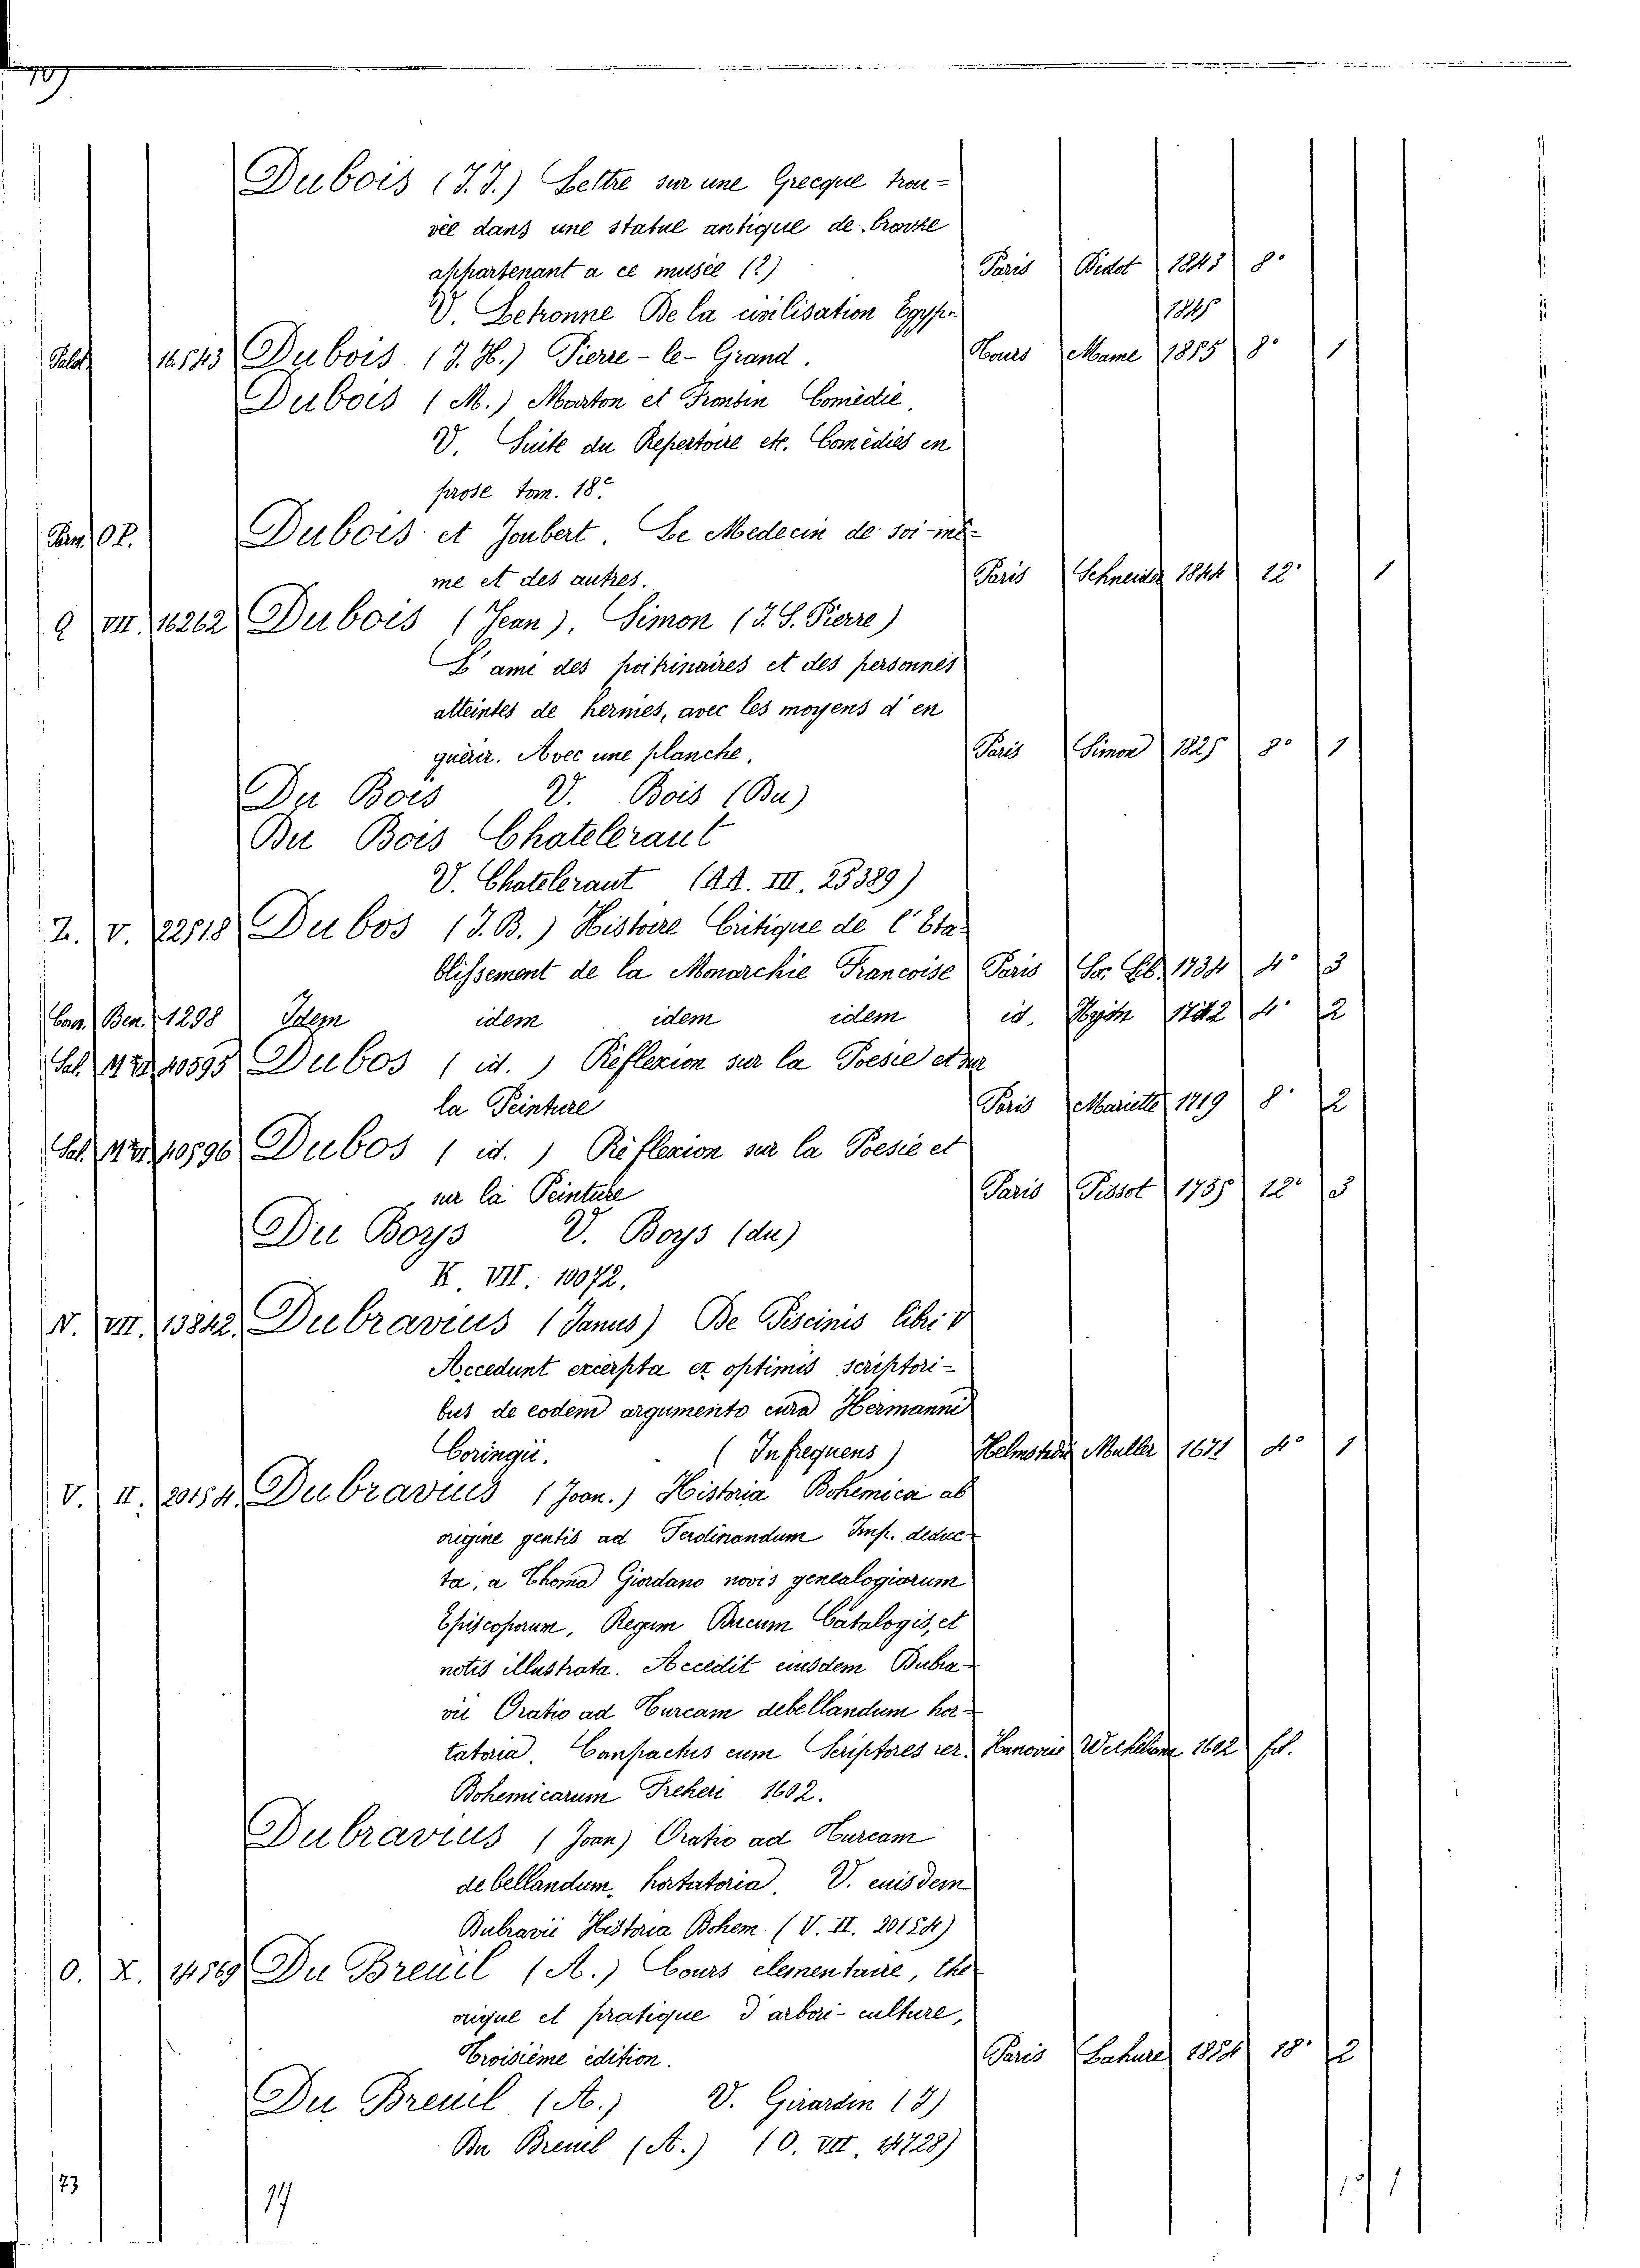 109
Dubois (J. J.) Lettre sur une Grecque trou-
vée dans une statue antique de bronze
appartenant a ce musée (?) Paris Didot 1843 8°
V. Letronne De la civilisation Egyp. 1845
16543 Dubois (J. H.) Pierre-le-Grand. Tours Mame 1855 8° 1
Dubois (M.) Marton et Frontin Comédie,
V. Suite du Repertoire etc. Comédies en
prose tom. 18.e
Dubois et Joubert. Le Medecin de soi-mê-
me et des autres. Paris Schneider 1844 12° 1
Q VII. 16262 Dubois (Jean), Simon (J. S. Pierre)
L'ami des poitrinaires et des personnes
atteintes de hernies, avec les moyens d'en
guérir. Avec une planche. Paris Simon 1825 8° 1
Du Bois V. Bois (Du)
Du Bois Chateleraut
V. Chateleraut (AA. III. 25389)
Z. V. 22518 Dubos (J. B.) Histoire Critique de l'Eta-
blissement de la Monarchie Francoise Paris 1734 4° 3
Ben. 1298 Idem idem idem idem id. 1742 4° 2
Sal. 10595 Dubos (id.) Réflexion sur la Poesie et sur
la Peinture Paris Mariette 1719 8° 2
Sal. 10596 Dubos (id.) Réflexion sur la Poesie et
sur la Peinture Paris Pissot 1755 12° 3
Du Boys V. Boys (du)
K. VII. 10072.
N. VII. 13842. Dubravius (Janus) De Piscinis libri V
Accedunt excerpta ex optimis scriptori-
bus de eodem argumento cura Hermanni
Coringii. (Infrequens) Helmstadii Muller 1671 4° 1
V. II. 20154. Dubravius (Joan.) Historia Bohemica ab
origine gentis ad Ferdinandum Imp. deduc-
ta, a Thoma Giordano novis genealogiarum
Episcoporum, Regum Ducum Catalogis, et
notis illustrata. Accedit eiusdem Dubra-
vii Oratio ad Turcam debellandum hor-
tatoria. Conpactus cum Scriptores rer. Hanovriæ 1602 fol.
Bohemicarum Freheri 1602.
Dubravius (Joan) Oratio ad Turcam
debellandum, hortatoria. V. euisdem
Dubravii Historia Bohem. (V. II. 20154)
O. X. 14569 Du Breüil (A.) Cours elementaire, the-
orique et pratique d'arbori-culture,
Troisième édition. Paris Lahure 1854 18° 2
Du Breuil (A.) V. Girardin (J)
Du Breuil (A.) (O. VII. 14728)
23
17